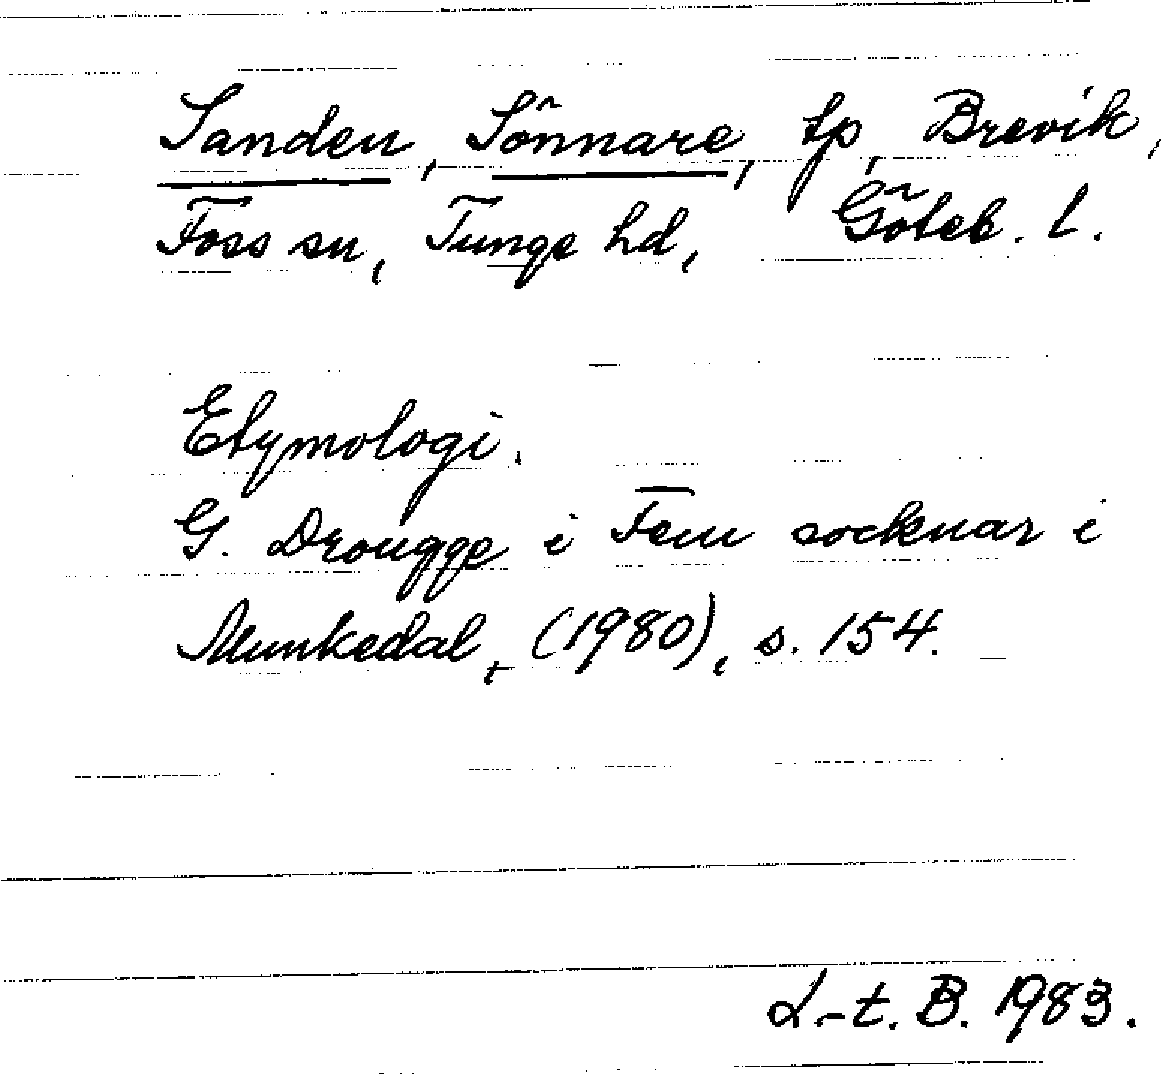 Sanden, Sönnare, tp, Brevik,
Foss sn, Tunge hd, Göteb. l.
Etymologi.
G. Drougge i Fem socknar i
Munkedal, (1980), s. 154.
L-t. B. 1983.